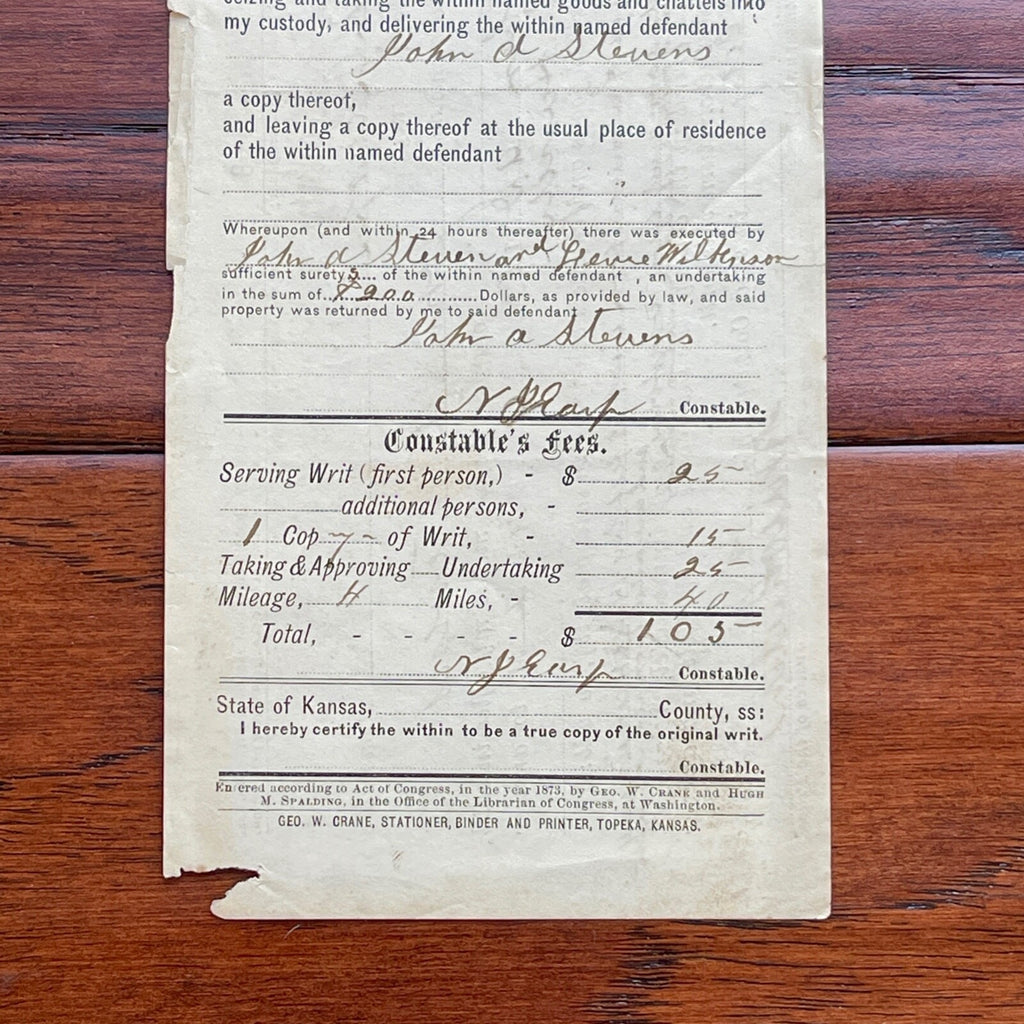 seizing and taking the within named goods and chattels into
my custody, and delivering the within named defendant
John a Stevens
a copy thereof,
and leaving a copy thereof at the usual place of residence
of the within named defendant
Whereupon (and within 24 hours thereafter) there was executed by
John a Steven and Wilkinson
sufficient surety s of the within named defendant , an undertaking
in the sum of $200 Dollars, as provided by law, and said
property was returned by me to said defendant
John a Stevens
N J Earp Constable.
Constable's Fees.
Serving Writ (first person,) - $ 25
additional persons, -
1 Copy of Writ, - 15
Taking & Approving Undertaking 25
Mileage, 4 Miles, - 40
Total, - - - - $ 1 05
N J Earp Constable.
State of Kansas, County, ss:
I hereby certify the within to be a true copy of the original writ.
Constable.
Entered according to Act of Congress, in the year 1873, by GEO. W. CRANE and HUGH
M. SPALDING, in the Office of the Librarian of Congress, at Washington.
GEO. W. CRANE, STATIONER, BINDER AND PRINTER, TOPEKA, KANSAS.